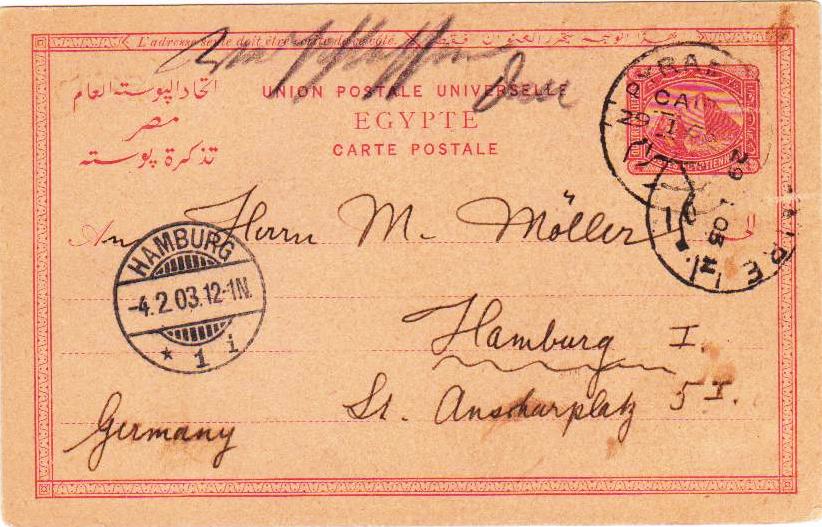 L'adresse seule doit être de ce côté.
UNION POSTALE UNIVERSELLE
EGYPTE
CARTE POSTALE
اتحاد البوسته العام
مصر
تذكرة بوسته
CAIRE
An Herrn M. Möller
HAMBURG
-4.2.03.12-1N.
* 1 i
Hamburg I.
St. Anscharplatz 5 I.
Germany